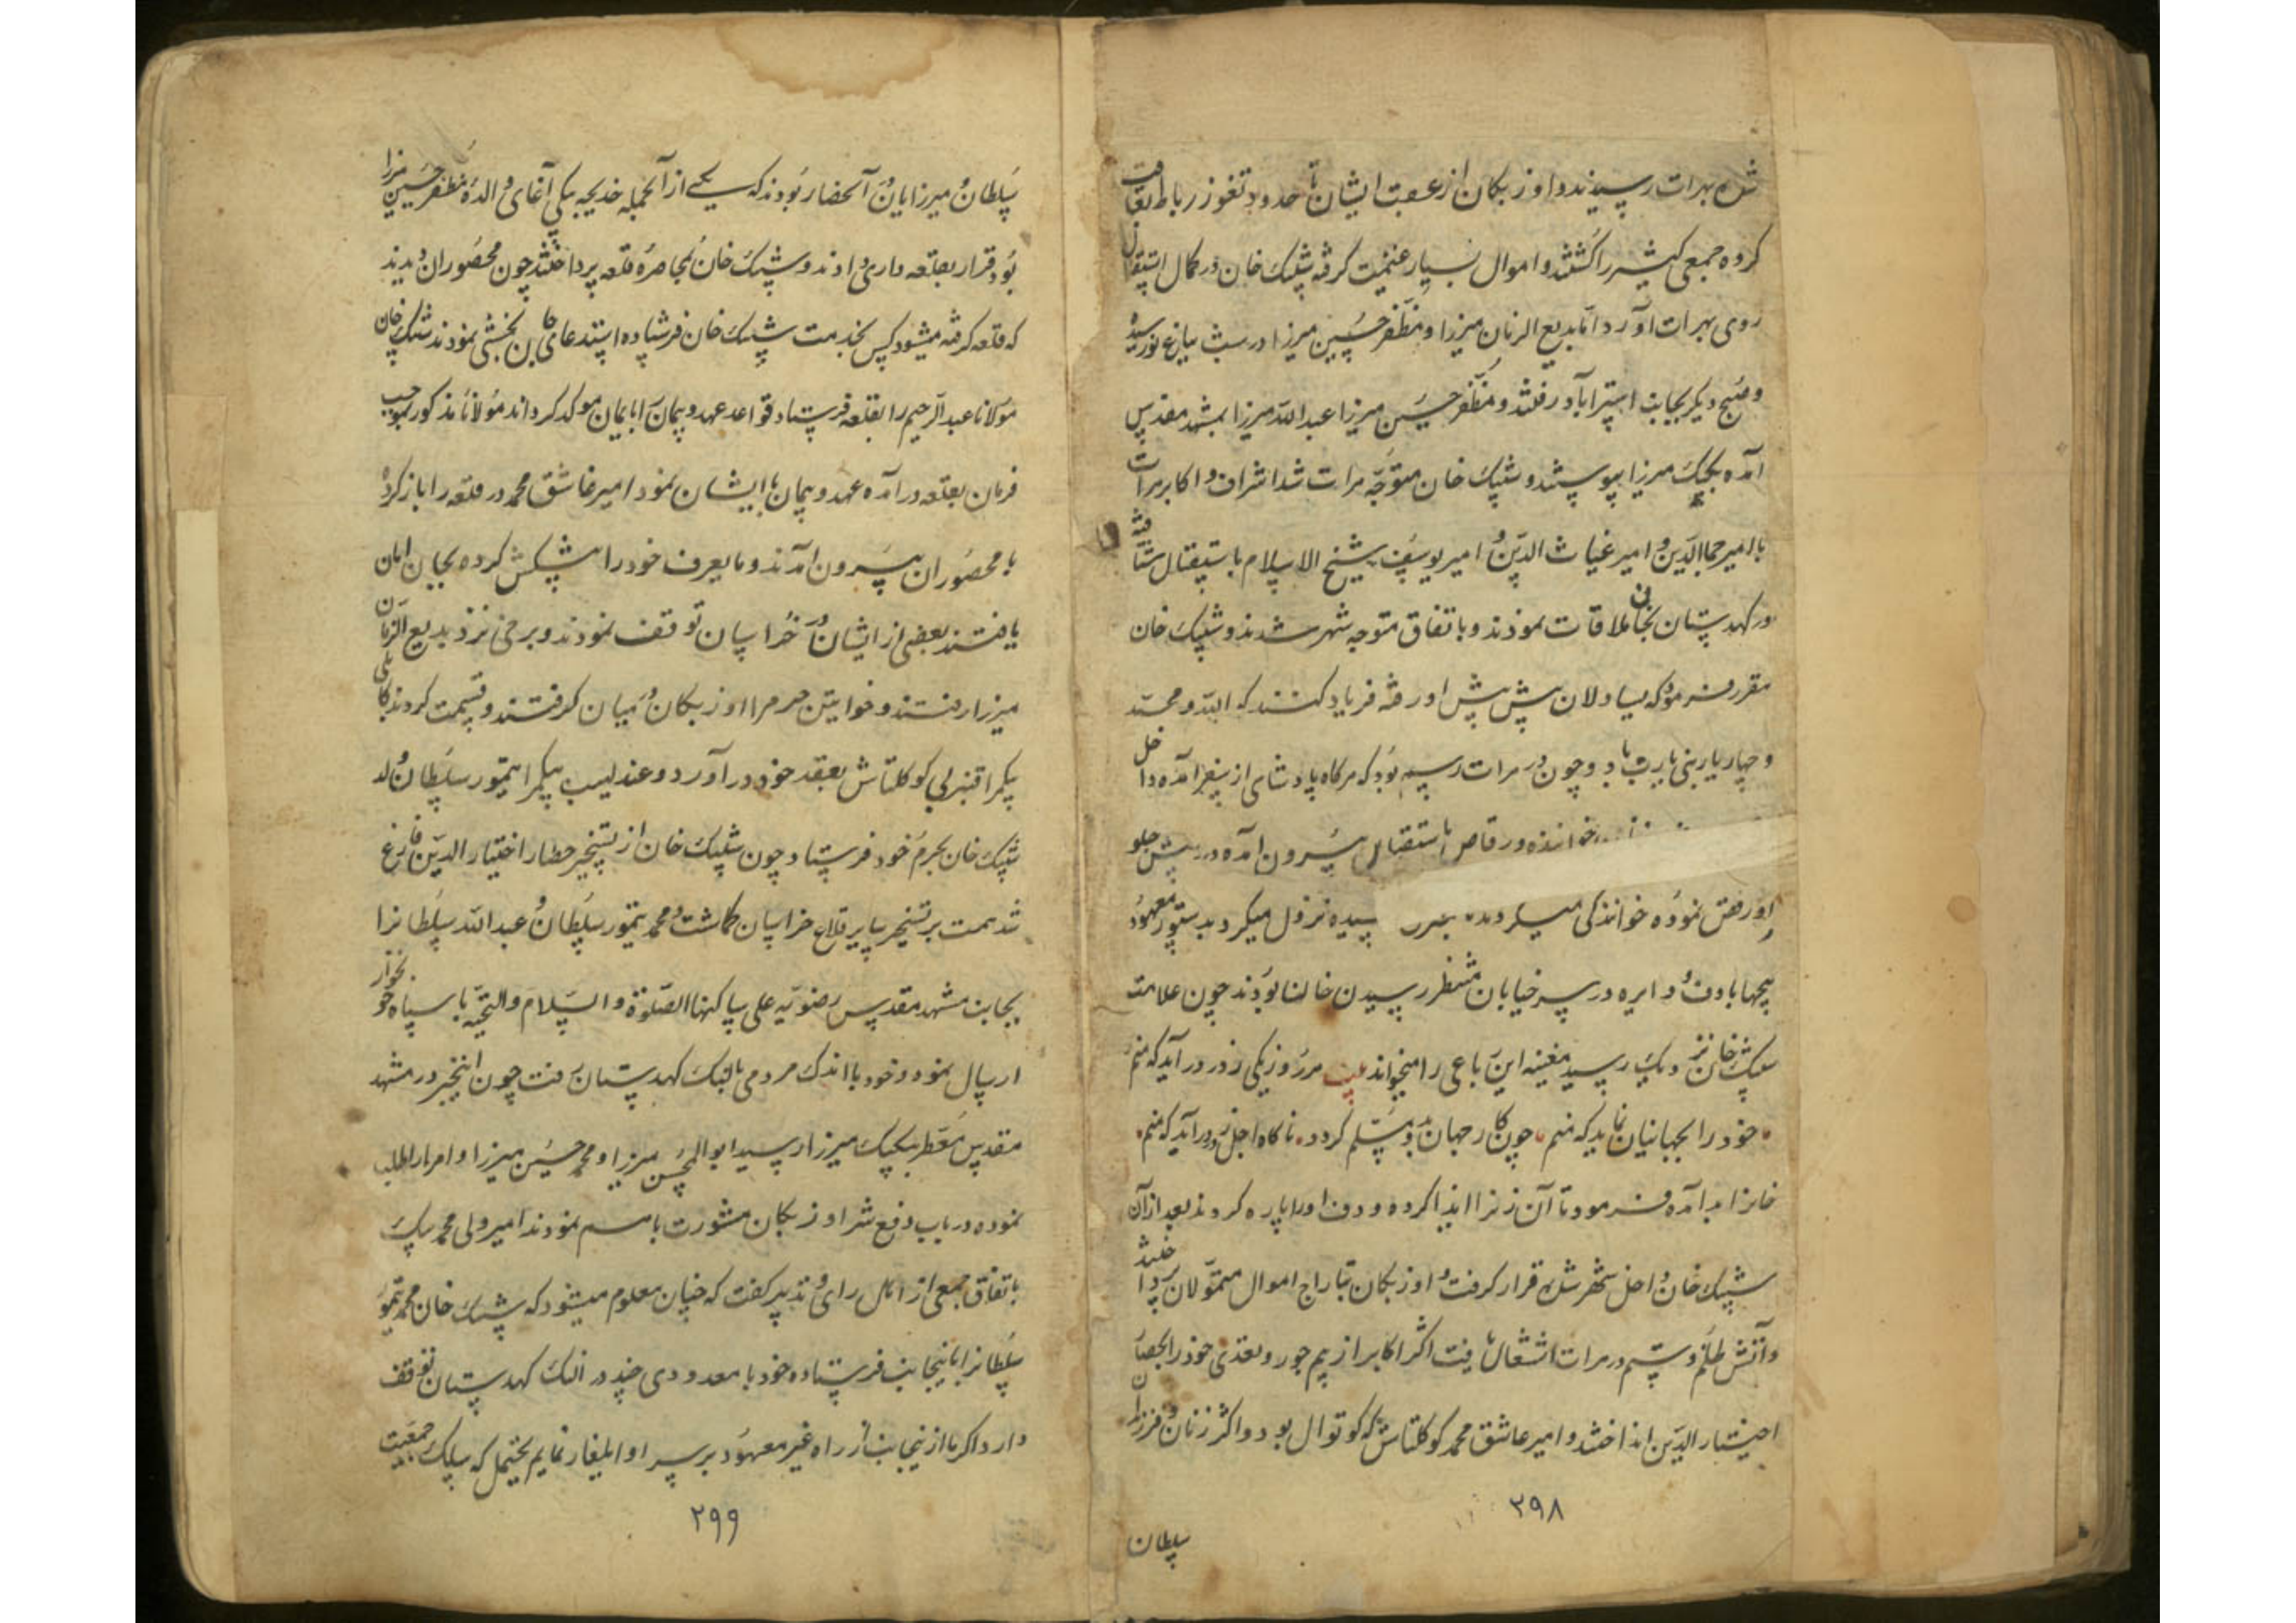 شده بهرات رسیدند و اوزبکان از عقب ایشان تا حدود تغوز رباط تعاقب
کرده جمعی کثیر را کشتند و اموال بسیار غنیمت گرفته شیبک خان در کمال استقلال
روی بهرات آورد اما بدیع الزمان میرزا و مظفر حسین میرزا در شب بباغ نو رسیده
و صبح دیگر بجانب استرآباد رفتند و مظفر حسین میرزا عبدالله میرزا بمشهد مقدس
آمده بکپک میرزا پیوستند و شیبک خان متوجه هرات شد اشراف و اکابر هرات
با امیر جمال الدین و امیر غیاث الدین و امیر یوسف شیخ الاسلام باستقبال شتافته
در کهدستان بخان ملاقات نمودند و باتفاق متوجه شهر شدند و شیبک خان
مقرر فرموده که یساولان پیش پیش او رفته فریاد کنند که الله و محمد
و چهار یار نبی یا رب باد و چون در هرات رسم بود که هرگاه پادشاهی از سفر آمده داخل
خوانده و رقاص باستقبال بیرون آمده در پیش جلو
او رقص نموده خوانندگی میکردند نزول میکرد بدستور معهود
بیچها با دف و دایره در سر خیابان منتظر رسیدن خان بودند چون علامت
شیبک خان نزدیک رسید مغنیه این رباعی را میخواند بیت هر روز یکی ز در درآید که منم
خود را بجهانیان نماید که منم چون کار جهان بدو مسلم گردد ناگاه اجل ز در درآید که منم
خانرا بد آمده فرمود تا آن زنرا ایذا کرده و دف او را پاره کردند بعد از آن
شیبک خان داخل شهر شده قرار گرفت و اوزبکان بتاراج اموال متمولان پرداختند
و آتش ظلم و ستم در هرات اشتعال یافت اکثر اکابر از بیم جور و تعدی خود را بحصار
اختیار الدین انداختند و امیر عاشق محمد کوکلتاش که کوتوال بود و اکثر زنان و فرزندان
۲۹۸
سلطان
سلطان و میرزایان در آنحصار بودند که یکی از آنجمله خدیجه بیکی آغای والده مظفر حسین میرزا
بود قرار بقلعه داری دادند و شیبک خان بمحاصره قلعه پرداختند چون محصوران دیدند
که قلعه گرفته میشود کس بخدمت شیبک خان فرستاده استدعای جان بخشی نمودند شیبک خان
مولانا عبدالرحیم را بقلعه فرستاد قواعد عهد و پیمان بایمان موکد گرداند مولانا مذکور بموجب
فرمان بقلعه درآمده عهد و پیمان با ایشان نمود امیر عاشق محمد در قلعه را باز کرده
با محصوران بیرون آمدند و مایعرف خود را پیشکش کرده بجان امان
یافتند بعضی از ایشان در خراسان توقف نمودند و برخی نزد بدیع الزمان
میرزا رفتند و خواتین حرم را اوزبکان در میان گرفتند و قسمت کردند کابلی
بیکم را قنبر بی کوکلتاش بعقد خود درآورد و عندلیب بیکم را تیمور سلطان ولد
شیبک خان بحرم خود فرستاد چون شیبک خان از تسخیر حصار اختیار الدین فارغ
شد همت بر تسخیر سایر قلاع خراسان گماشت و محمد تیمور سلطان و عبدالله سلطانرا
بجانب مشهد مقدس رضویه علی ساکنها الصلوة والسلام والتحیة با سپاه خونخوار
ارسال نمود و خود با اندک مردمی بالنک کهدستان رفت چون اینخبر در مشهد
مقدس معطر بکپک میرزا رسید ابوالمحسن میرزا و محمد حسین میرزا و امرا را طلب
نموده در باب دفع شر اوزبکان مشورت باهم نمودند امیر ولی محمد بیک
باتفاق جمعی از اهل رای و تدبیر گفت که چنان معلوم میشود که شیبک خان محمد تیمور
سلطانرا باینجانب فرستاده خود با معدودی چند در النک کهدستان توقف
دارد اگر ما ازینجانب از راه غیر معهود بر سر او ایلغار نمایم یحتمل که سلک جمعیت
۲۹۹